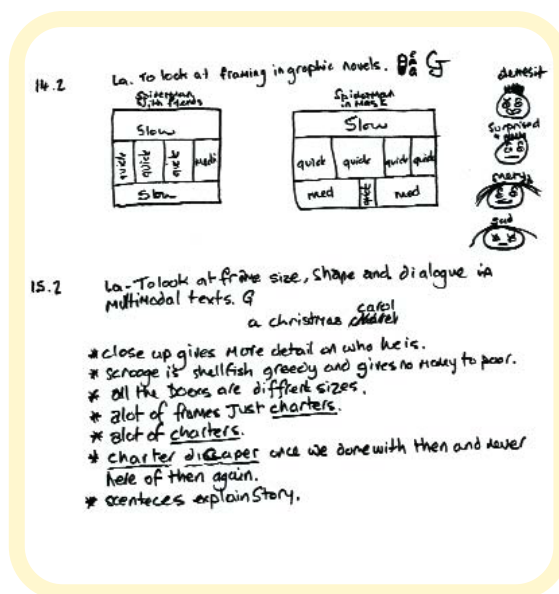 14.2 La. To look at framing in graphic novels.
Spiderman with friends
Slow
quick quick quick medi
Slow
Spiderman in Mask
Slow
quick quick quick quick
med quick med
Surprised
sad
15.2 La- To look at frame size, Shape and dialogue in
MultiModal texts. G
a christmas carol
*close up gives More detail on who he is.
* scrooge is shellfish greedy and gives no money to poor.
* all the Doors are diffrent sizes.
* alot of frames Just charters.
* alot of charters.
* charter discaper once we done with then and never
here of then again.
* scenteces explain Story.